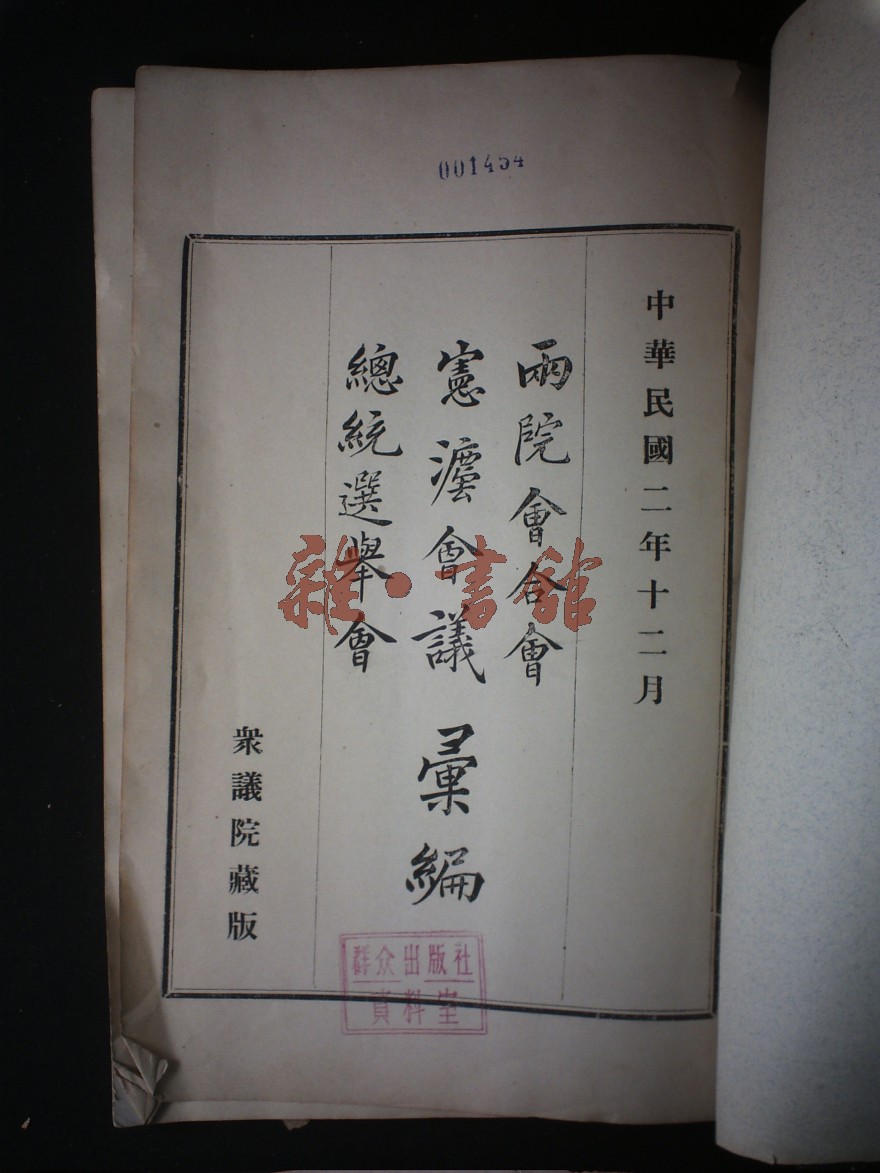 001454
中華民國二年十二月
兩院會合會
憲灋會議
總統選舉會
彙編
衆議院藏版
群众出版社
資料室
雜·書館